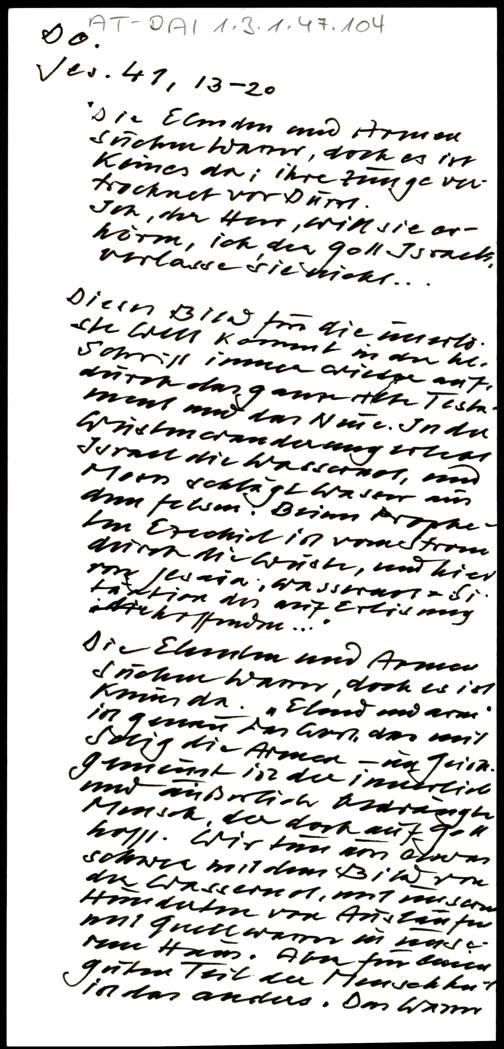 AT-DAI 1.3.1.47.104
Do.
Jes. 41, 13-20
"Die Elenden und Armen
suchen Wasser, doch es ist
keines da; ihre Zunge ver-
trocknet vor Durst.
Ich, der Herr, will sie er-
hören, ich, der Gott Israels,
verlasse sie nicht...
Dieses Bild für die unerlö-
ste Welt kommt in der hl.
Schrift immer wieder auf,
durch das ganze Alte Testa-
ment und das Neue. In der
Wüstenwanderung
Israel die Wassernot, und
Moses schlägt Wasser aus
dem Felsen. Beim Prophe-
ten Ezechiel ist vom Strom
durch die Wüste, und hier
von Jesaia: Wassernot = Si-
tuation der auf Erlösung
Hoffenden..."
Die Elenden und Armen
suchen Wasser, doch es ist
keines da. "Elend und arm"
ist genau das Wort, das mit
Selig die Armen - im Geist
gemeint ist der innerlich
und äußerlich bedrängte
Mensch, der doch auf Gott
hofft. Wir tun uns etwas
schwer mit dem Bild von
der Wassernot, mit unseren
Hunderten von Ausläufen
mit Quellwasser in unse-
rem Haus. Aber für einen
guten Teil der Menschheit
ist das anders. Das Wasser